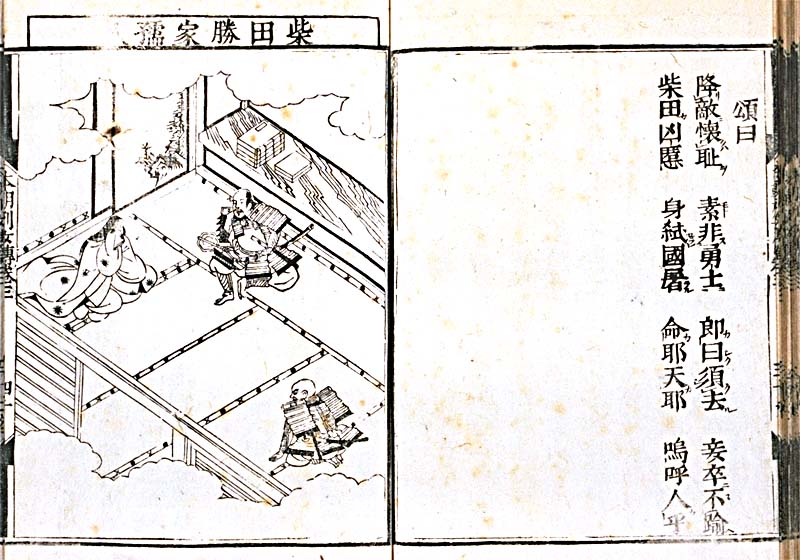 頌曰
降敵懷耻 素非勇士 郎曰須去 妾卒不踰
柴田凶慝 身弑國屠 命耶天耶 嗚呼人乎
柴田勝家孺
本朝列女傳卷三
四十